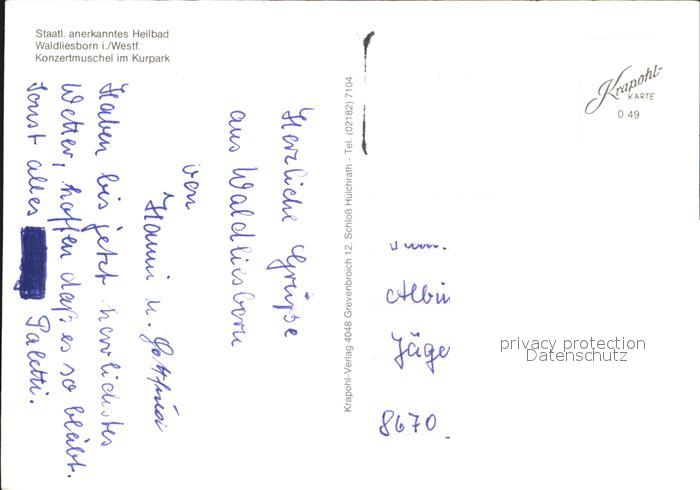 Staatl. anerkanntes Heilbad
Waldliesborn i./Westf.
Konzertmuschel im Kurpark
Herzliche Grüße
aus Waldliesborn
von
Hanni u.
Haben bis jetzt herrlichstes
Wetter, hoffen daß es so bleibt.
Sonst alles Paletti.
Krapohl-Verlag 4048 Grevenbroich 12, Schloß Hülchrath - Tel. (02182) 7104
Krapohl-
KARTE
0.49
Albin
Jäge
8670
privacy protection
Datenschutz